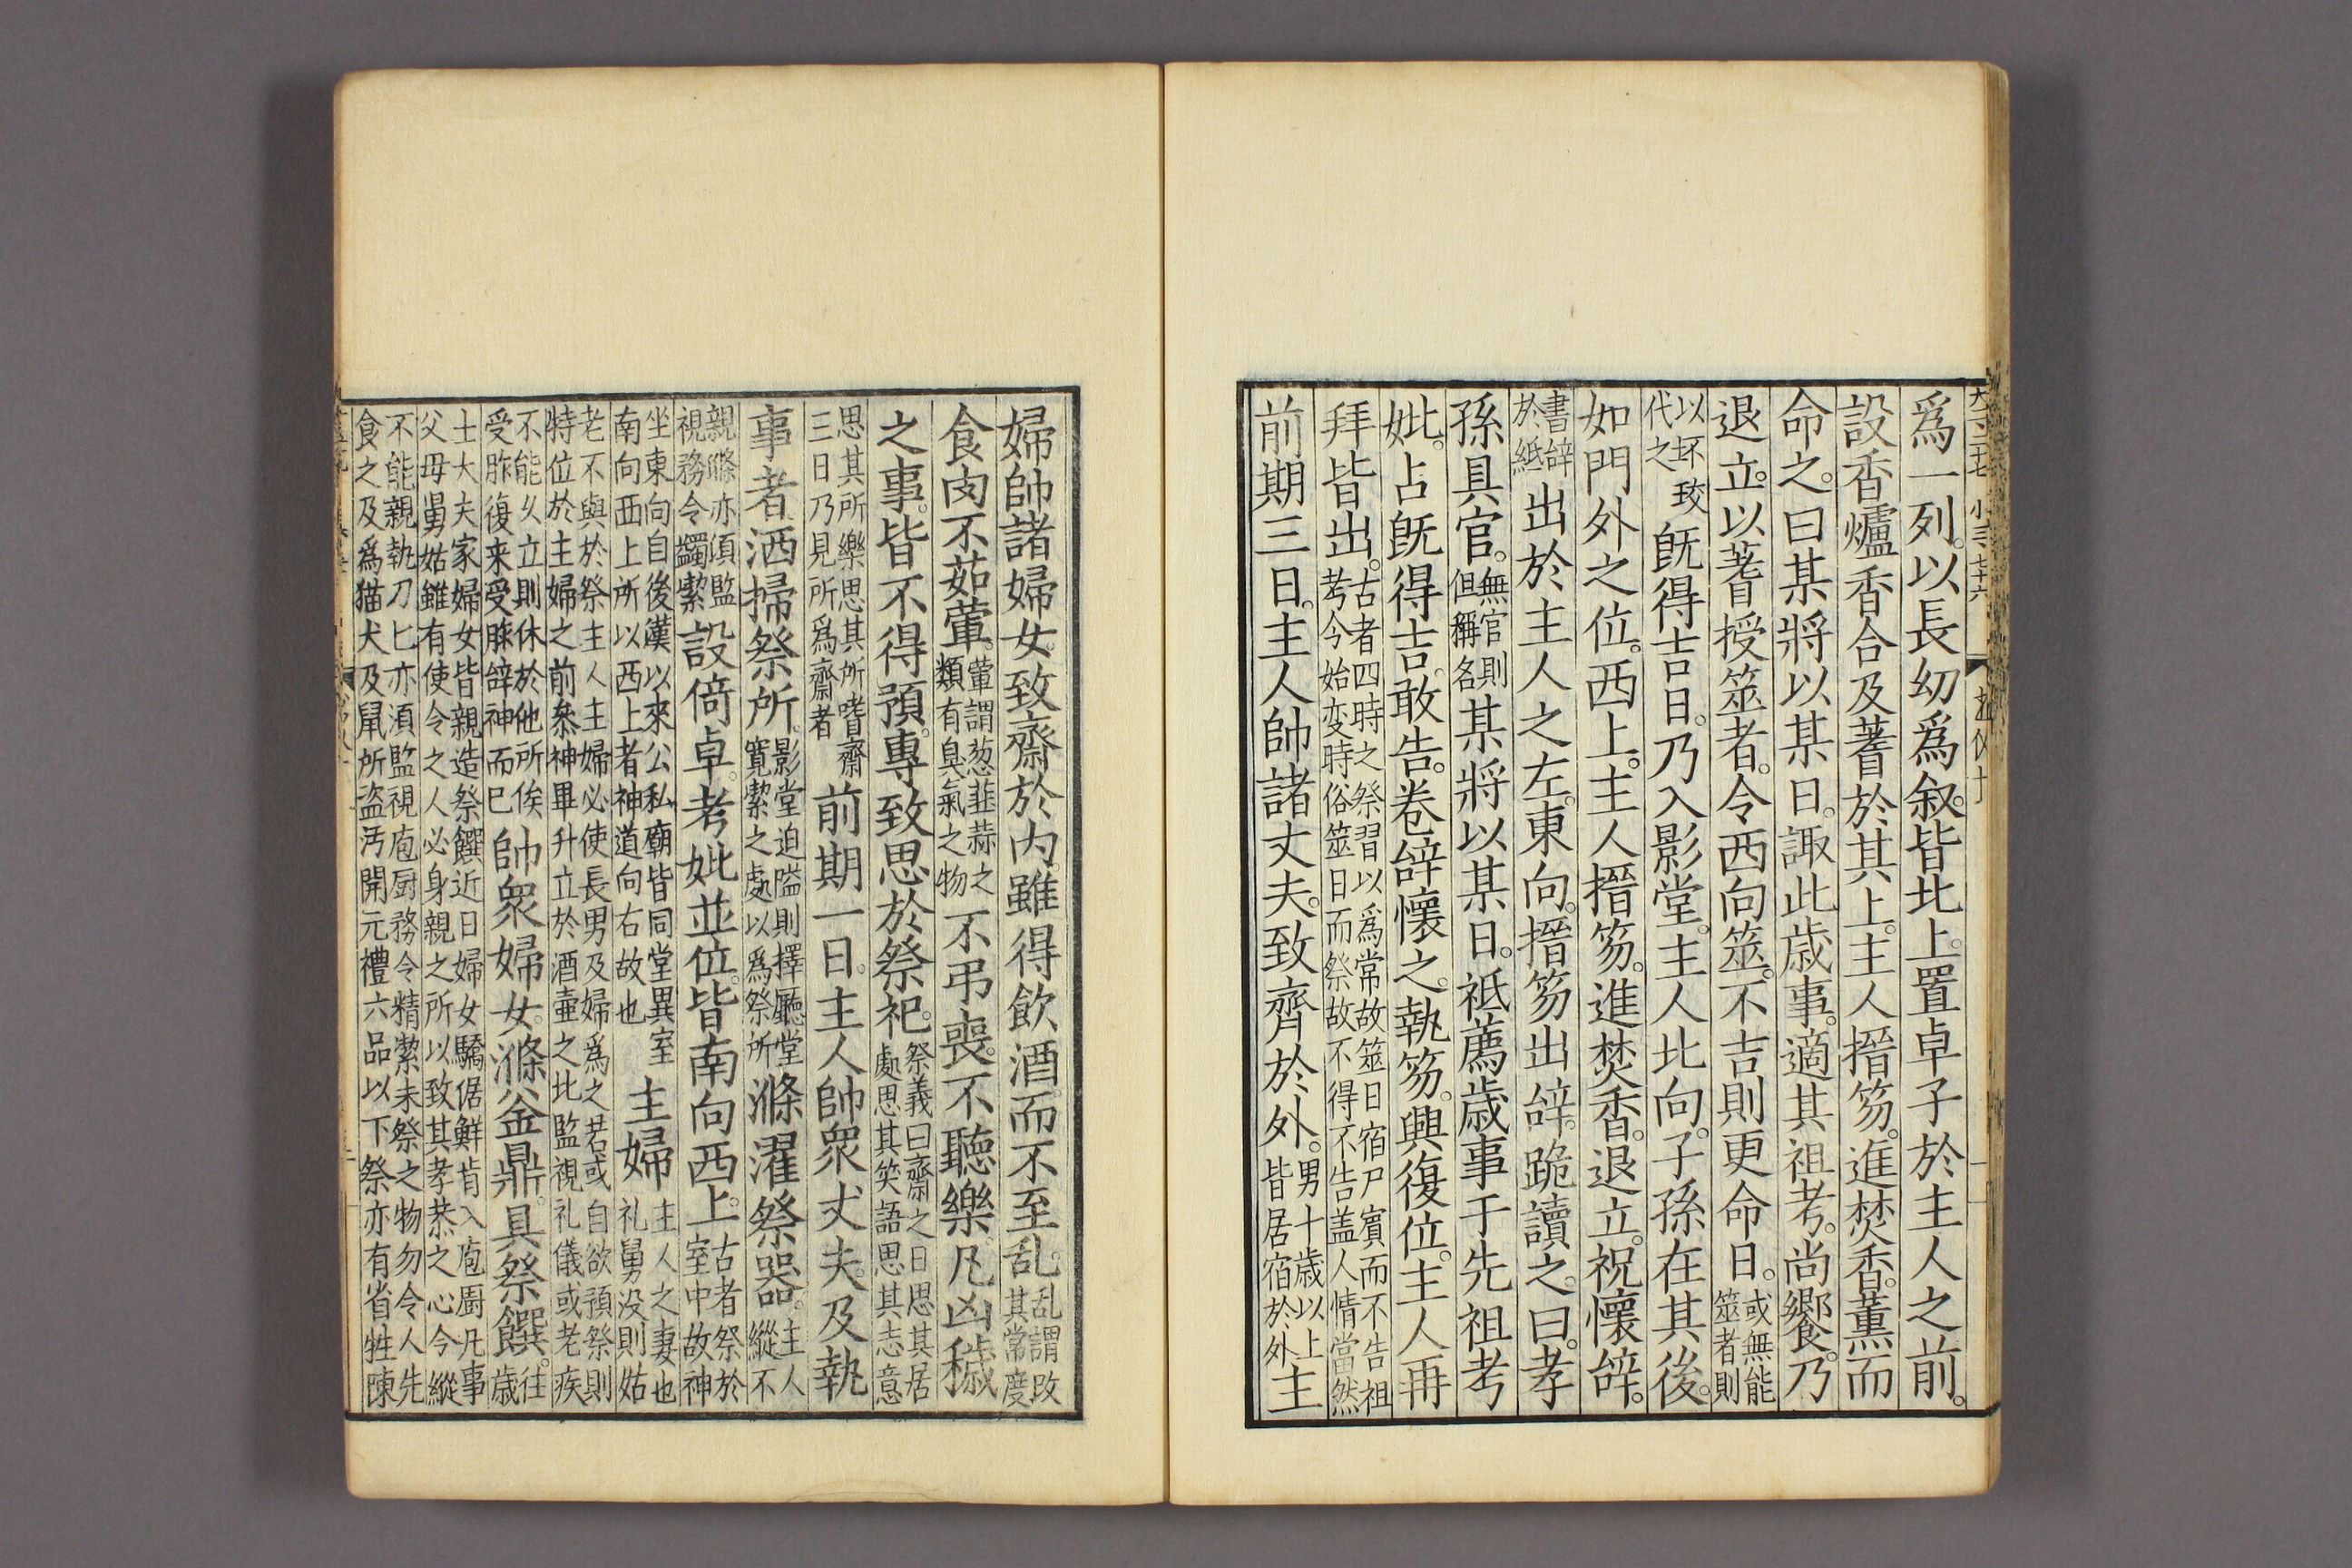 爲一列。以長幼爲叙。皆北上。置卓子於主人之前。
設香爐香合及蓍於其上。主人搢笏。進焚香。薰而
命之。曰某將以某日。諏此歳事。適其祖考。尚饗。乃
退立。以蓍授筮者。令西向筮。不吉則更命日。或無能筮者則
以环珓代之既得吉日。乃入影堂。主人北向。子孫在其後。
如門外之位。西上。主人搢笏。進焚香。退立。祝懷辝。
書辝於紙出於主人之左。東向。搢笏出辝。跪讀之。曰。孝
孫具官。無官則但稱名某將以某日。祗薦歳事于先祖考
妣。占既得吉。敢告。卷辝懷之。執笏。興復位。主人再
拜皆出。古者四時之祭習以爲常故筮日宿尸賓而不告祖考今始变時俗筮日而祭故不得不告盖人情當然
前期三日。主人帥諸丈夫。致齊於外。男十歳以上皆居宿於外主
婦帥諸婦女。致齋於内雖得飲酒。而不至乱。乱謂改其常度
食肉不茹葷。葷謂葱韮蒜之類有臭氣之物不弔喪。不聽樂。凡凶穢
之事。皆不得預。專致思於祭祀。祭義曰齋之日思其居處思其笑語思其志意
思其所樂思其所嗜齋三日乃見所爲齋者前期一日。主人帥衆丈夫。及執
事者洒掃祭所。影堂迫隘則擇廳堂寛潔之處以爲祭所滌濯祭器。主人縱不
親滌亦湏監視務令蠲潔設倚卓。考妣並位。皆南向西上。古者祭於室中故神
坐東向自後漢以來公私廟皆同堂異室南向西上所以西上者神道向右故也主婦主人之妻也礼舅没則姑
老不與於祭主人主婦必使長男及婦爲之若或自欲預祭則特位於主婦之前叅神畢升立於酒壷之北監視礼儀或老疾
不能乆立則休於他所俟受胙復来受胙辝神而已帥衆婦女。滌釡鼎。具祭饌。徃歳
士大夫家婦女皆親造祭饌近日婦女驕倨鮮肯入庖厨凡事父母舅姑雖有使令之人必身親之所以致其孝恭之心今縱
不能親執刀匕亦湏監視庖厨務令精潔未祭之物勿令人先食之及爲猫犬及鼠所盗汚開元禮六品以下祭亦有省牲陳